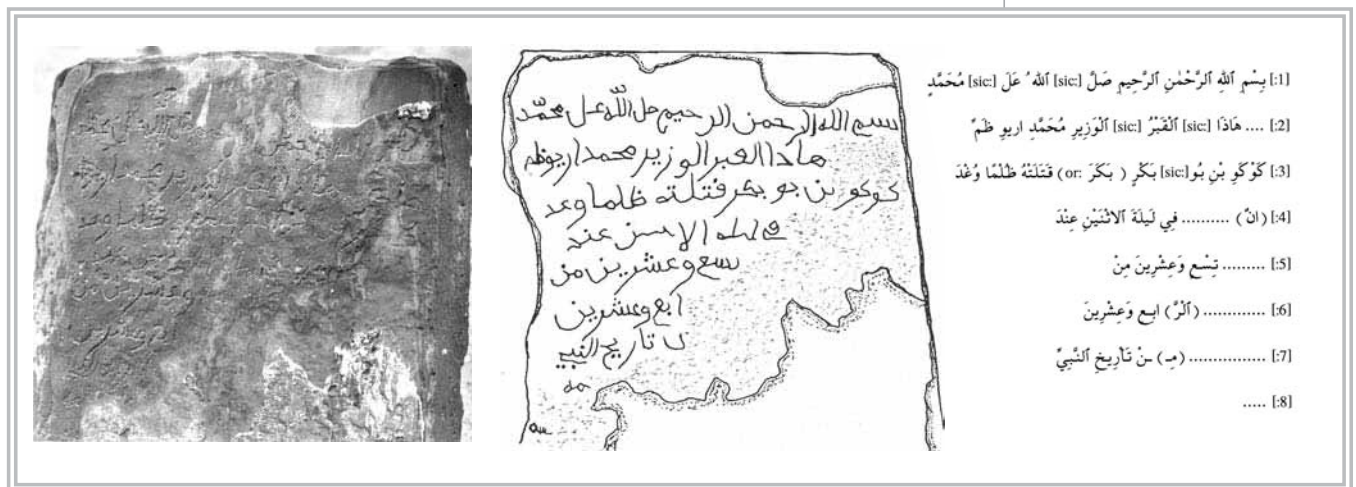 بسم الله الرحمن الرحيم صل الله عل محمد
هاذا القبر الوزير محمد اريو ظم
كوكو بن بو بكر قتلته ظلما وعد
في ليلة الاثنين عند
تسع وعشرين من
ابع وعشرين
ن تاريخ النبي
[1:] بِسْمِ ٱللهِ ٱلرَّحْمٰنِ ٱلرَّحِيمِ صَلَّ [sic:] ٱللهُ عَلَ [sic:] مُحَمَّدٍ
[2:] .... هَاذَا [sic:] ٱلْقَبْرُ [sic:] ٱلْوَزِيرِ مُحَمَّدِ اريو ظَمُ
[3:] كَوْكَوِ بْنِ بُو[sic:] بَكْرٍ ( بَكَرَ :or) قَتَلَتْهُ ظُلْمًا وُعْدَ
[4:] (انٌ) .......... فِي لَيلَةَ ٱلاثْنَيْنِ عِنْدَ
[5:] ......... تِسْعِ وَعِشْرِينَ مِنْ
[6:] ............. (ٱلرَّ) ابِعِ وَعِشْرِينَ
[7:] ................ (مِـ) ـنْ تَأْرِيخِ ٱلنَّبِيِّ
[8:] .....